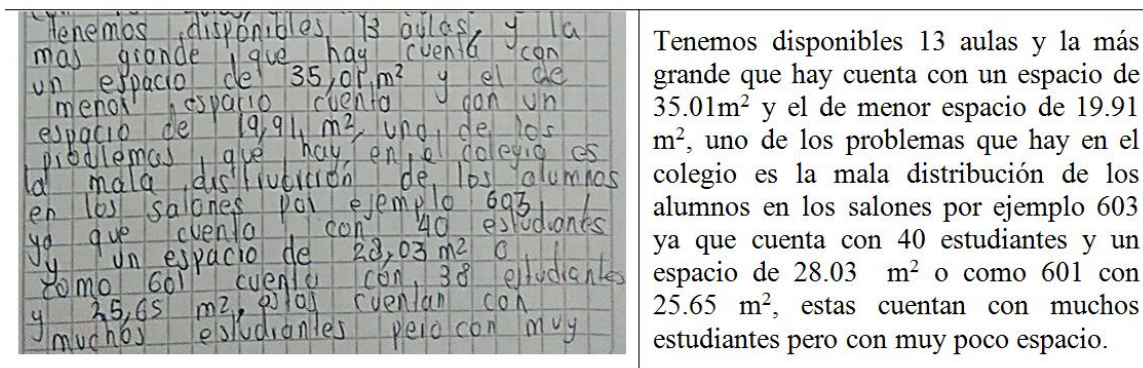 Tenemos disponibles 13 aulas y la
mas grande que hay cuenta con
un espacio de 35,01 m² y el de
menor espacio cuenta con un
espacio de 19,91 m², uno de los
problemas que hay en el colegio es
la mala distrivución de los alumnos
en los salones por ejemplo 603
ya que cuenta con 40 estudiantes
y un espacio de 28,03 m² o
como 601 cuenta con 38 estudiantes
y 25,65 m², estas cuentan con
muchos estudiantes pero con muy
Tenemos disponibles 13 aulas y la más
grande que hay cuenta con un espacio de
35.01m² y el de menor espacio de 19.91
m², uno de los problemas que hay en el
colegio es la mala distribución de los
alumnos en los salones por ejemplo 603
ya que cuenta con 40 estudiantes y un
espacio de 28.03 m² o como 601 con
25.65 m², estas cuentan con muchos
estudiantes pero con muy poco espacio.